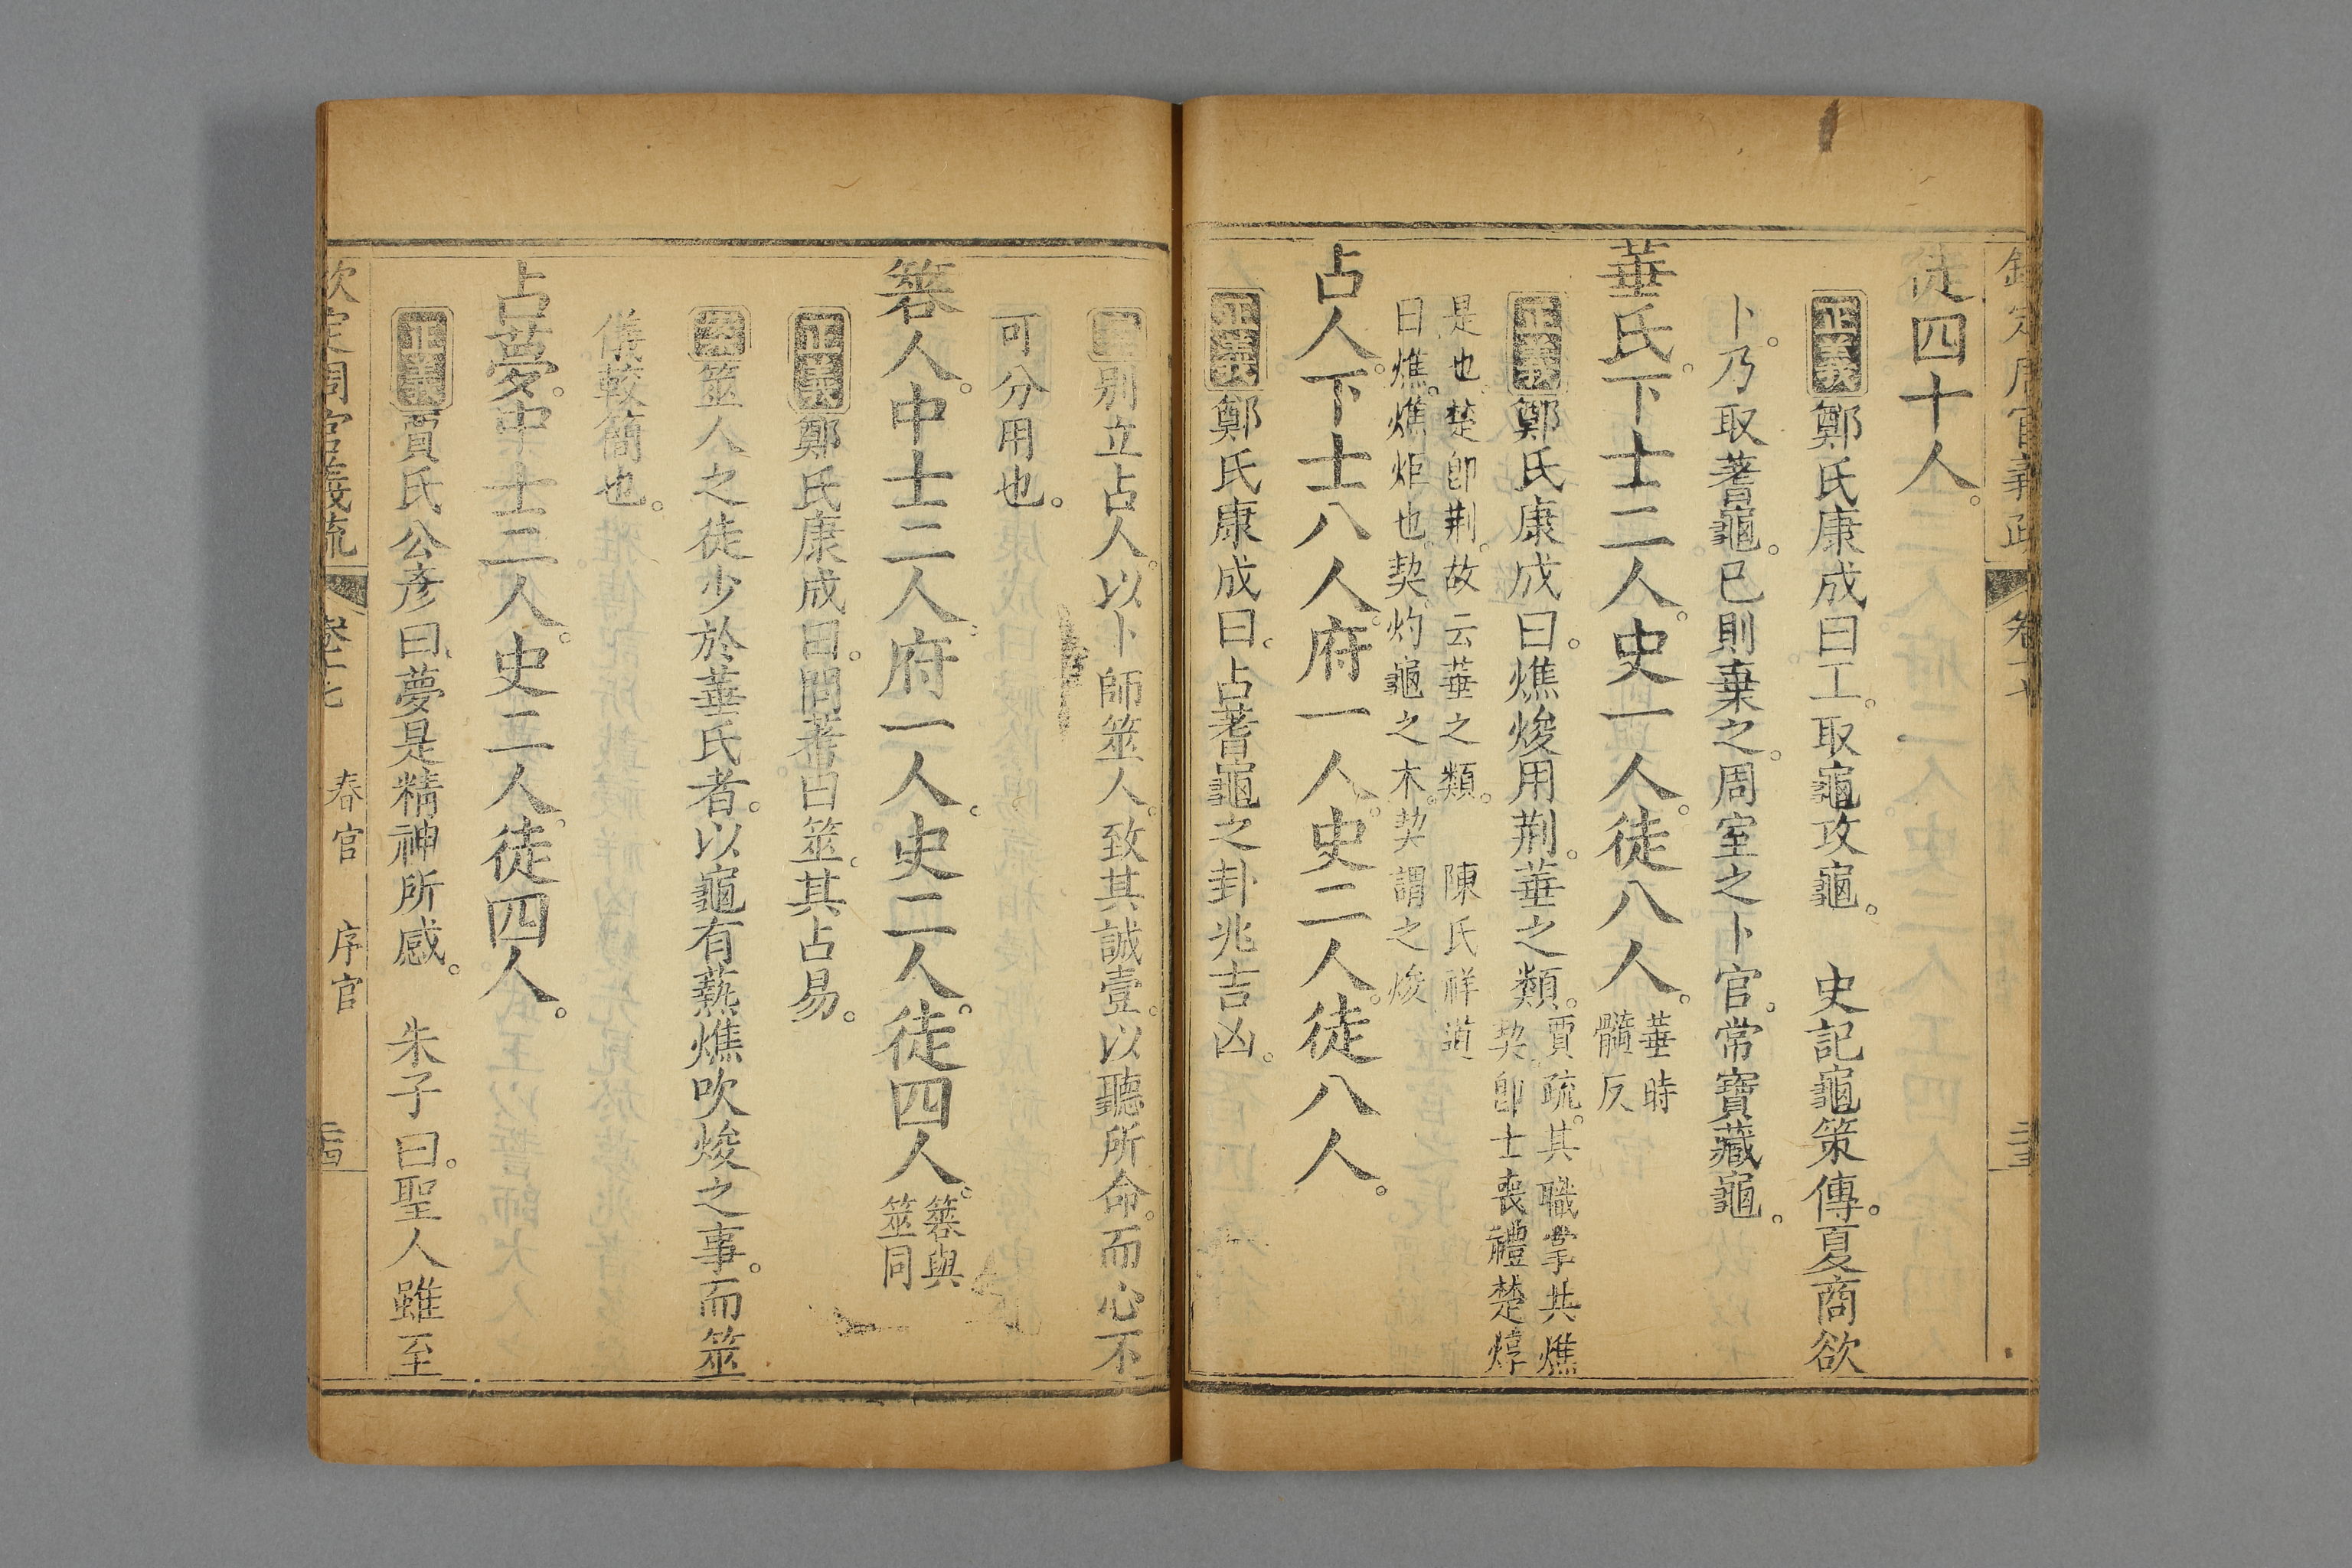 欽定周官義疏 卷十七
徒四十人。
正義鄭氏康成曰工。取龜攻龜。 史記龜策傳。夏商欲
卜。乃取蓍龜。已則棄之。周室之卜官。常寶藏龜。
菙氏。下士二人。史一人。徒八人。菙時
髓反
正義鄭氏康成曰。燋焌用荆。菙之類。賈疏。其職掌共燋
契卽士喪禮楚焞
是也。楚卽荆。故云菙之類。 陳氏祥道
曰燋。燋炬也。契。灼龜之木。契謂之焌
占人。下士八人。府一人。史二人。徒八人。
正義鄭氏康成曰。占蓍龜之卦兆吉凶。
別立占人。以卜師筮人。致其誠壹。以聽所命。而心不
可分用也。
簭人。中士二人。府一人。史二人。徒四人。簭與
筮同
正義鄭氏康成曰。問蓍曰筮。其占易。
筮人之徒少於菙氏者。以龜有爇燋吹焌之事。而筮
儀較簡也。
占夢。中士二人。史二人。徒四人。
正義賈氏公彥曰。夢是精神所感。 朱子曰。聖人雖至
欽定周官義疏 卷十七 春官 序官